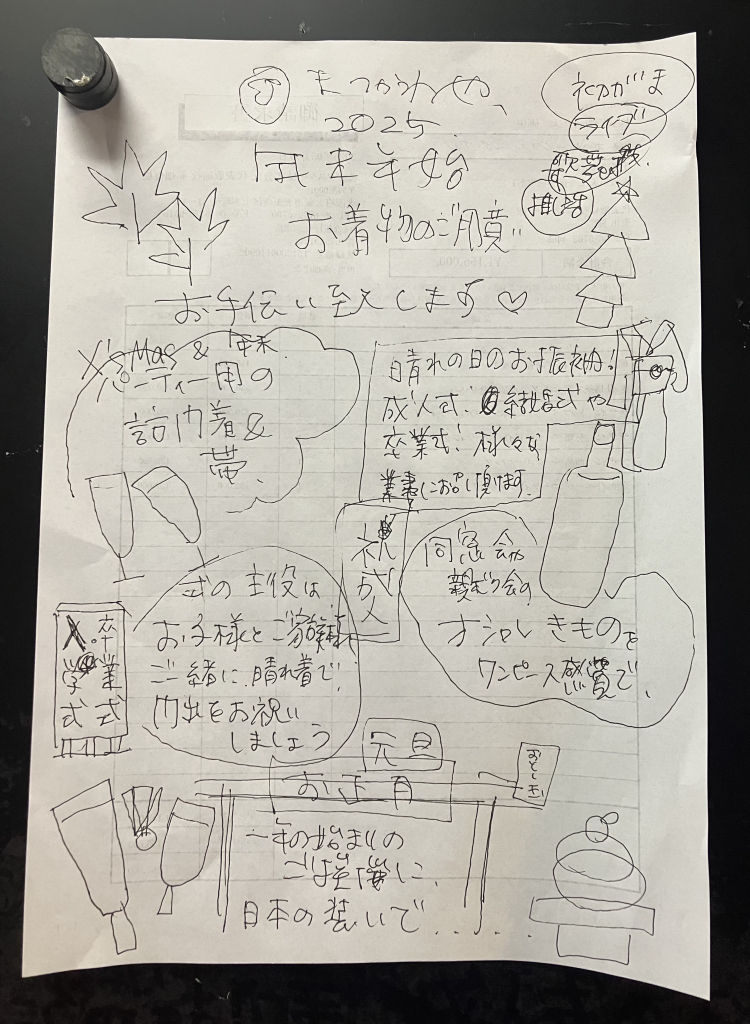 まつかわや、
2025.
年末年始
お着物のご用意
お手伝い致します♡
ネカガま
ライブ
歌舞伎
推し活
X'Mas & 年末
パーティー用の
訪門着&
帯
晴れの日のお振袖!
成人式! 結婚式や
卒業式! 様々な
業事にお召し頂けます
祝成人
同窓会や
親ボク会の
オシャレきものを
ワンピース感覚で、
式の主役は
お子様とご家族様
ご一緒に、晴れ着で、
門出をお祝い
しましょう
卒業式
入学式
元旦
お正月
おとしだま
一年の始まりの
ご挨拶に、
日本の装いで......